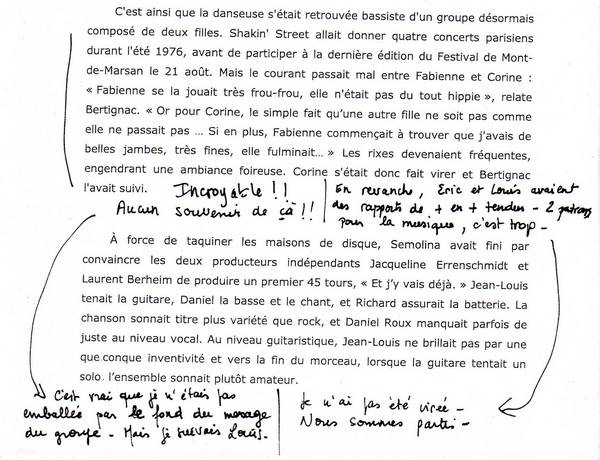 C'est ainsi que la danseuse s'était retrouvée bassiste d'un groupe désormais
composé de deux filles. Shakin' Street allait donner quatre concerts parisiens
durant l'été 1976, avant de participer à la dernière édition du Festival de Mont-
de-Marsan le 21 août. Mais le courant passait mal entre Fabienne et Corine :
« Fabienne se la jouait très frou-frou, elle n'était pas du tout hippie », relate
Bertignac. « Or pour Corine, le simple fait qu'une autre fille ne soit pas comme
elle ne passait pas ... Si en plus, Fabienne commençait à trouver que j'avais de
belles jambes, très fines, elle fulminait... » Les rixes devenaient fréquentes,
engendrant une ambiance foireuse. Corine s'était donc fait virer et Bertignac
l'avait suivi.
Incroyable !!
Aucun souvenir de çà !!
En revanche, Eric et Louis avaient
des rapports de + en + tendus - 2 patrons
pour la musique, c'est trop -
À force de taquiner les maisons de disque, Semolina avait fini par
convaincre les deux producteurs indépendants Jacqueline Errenschmidt et
Laurent Berheim de produire un premier 45 tours, « Et j'y vais déjà. » Jean-Louis
tenait la guitare, Daniel la basse et le chant, et Richard assurait la batterie. La
chanson sonnait titre plus variété que rock, et Daniel Roux manquait parfois de
juste au niveau vocal. Au niveau guitaristique, Jean-Louis ne brillait pas par une
que.conque inventivité et vers la fin du morceau, lorsque la guitare tentait un
solo, l'ensemble sonnait plutôt amateur.
C'est vrai que je n'étais pas
emballée par le fond du message
du groupe - Mais je suivais Louis.
Je n'ai pas été virée -
Nous sommes partis -